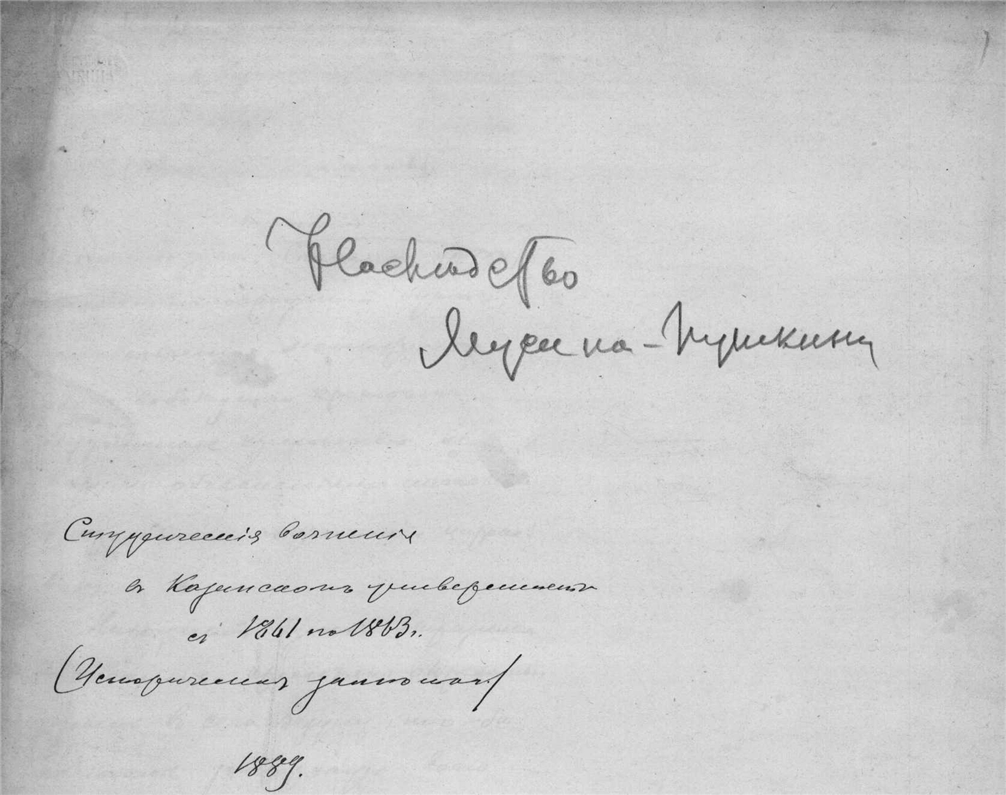 Наслѣдство
Мусина-Пушкина
Студенческія волненія
въ Казанскомъ университетѣ
съ 1861 по 1863 г.
(Историческая записка)
1889.